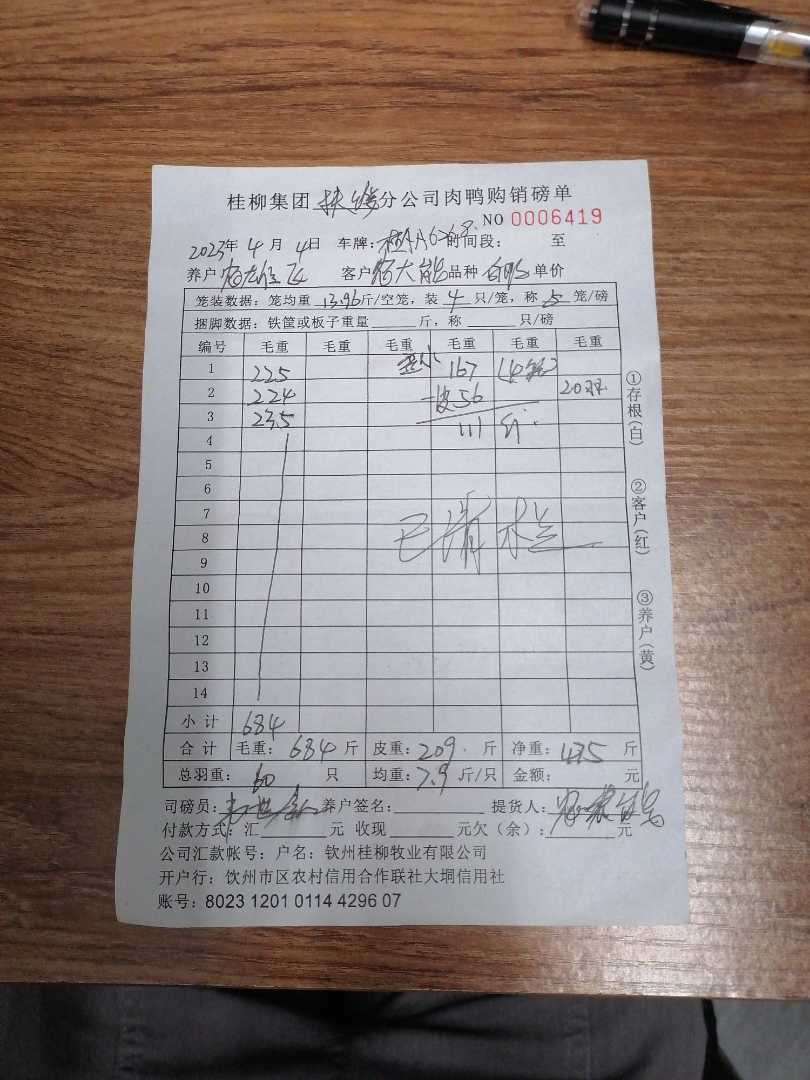 桂柳集团扶绥分公司肉鸭购销磅单
NO 0006419
2023年4月4日 车牌: 时间段: 至
养户 客户 品种 白鸭 单价
笼装数据:笼均重13.96斤/空笼,装4只/笼,称5笼/磅
捆脚数据:铁筐或板子重量 斤,称 只/磅
编号 毛重 毛重 毛重 毛重 毛重 毛重
1 225 167 (4笼)
2 224 -皮56 20羽
3 235 111斤
4
5
6
7
8 已清栏
9
10
11
12
13
14
小计 684
合计 毛重:684斤 皮重:209.斤 净重:475斤
总羽重:60只 均重:7.9斤/只 金额: 元
司磅员: 养户签名: 提货人:
付款方式:汇 元 收现 元欠(余): 元
公司汇款帐号:户名:钦州桂柳牧业有限公司
开户行:钦州市区农村信用合作联社大垌信用社
账号:8023 1201 0114 4296 07
①存根(白)
②客户(红)
③养户(黄)